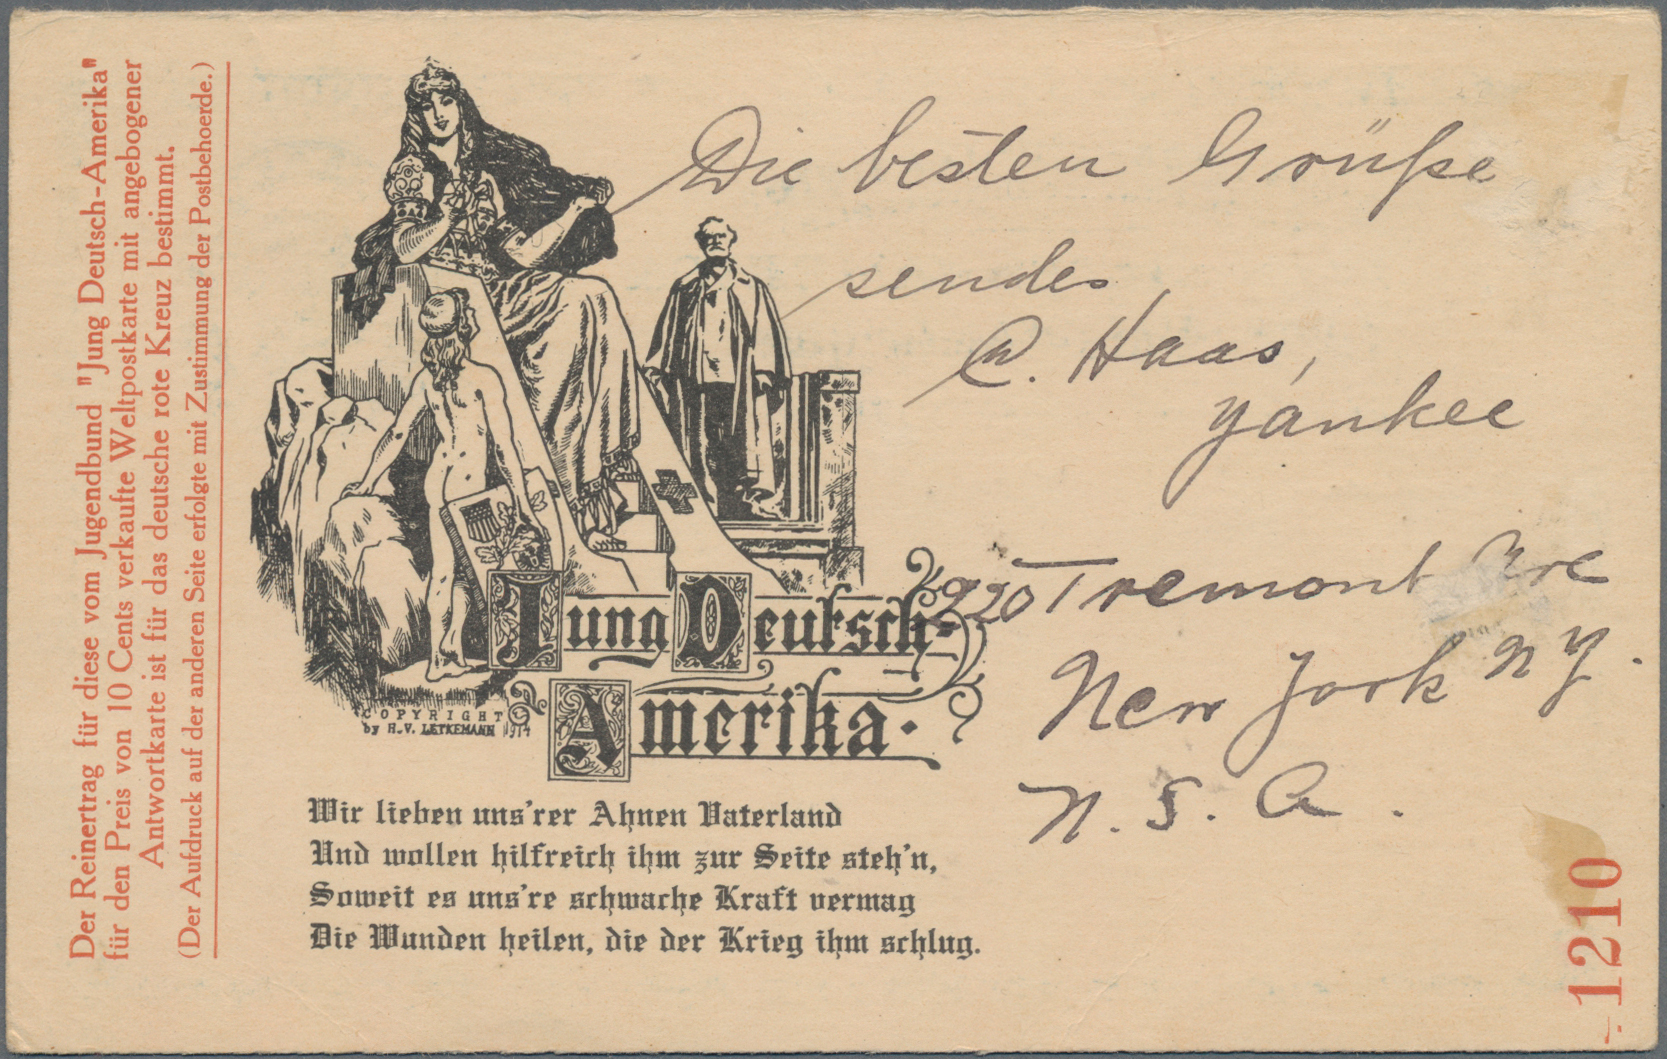 Der Reinertrag für diese vom Jugendbund "Jung Deutsch-Amerika"
für den Preis von 10 Cents verkaufte Weltpostkarte mit angebogener
Antwortkarte ist für das deutsche rote Kreuz bestimmt.
(Der Aufdruck auf der anderen Seite erfolgte mit Zustimmung der Postbehoerde.)
Die besten Grüße
sendes
C. Haas,
Yankee
920 Tremont Ave
New York N Y.
U. S. A.
Jung Deutsch-
Amerika.
COPYRIGHT
by H.V. LETKEMANN 1914
Wir lieben uns'rer Ahnen Vaterland
Und wollen hilfreich ihm zur Seite steh'n,
Soweit es uns're schwache Kraft vermag
Die Wunden heilen, die der Krieg ihm schlug.
- 1210